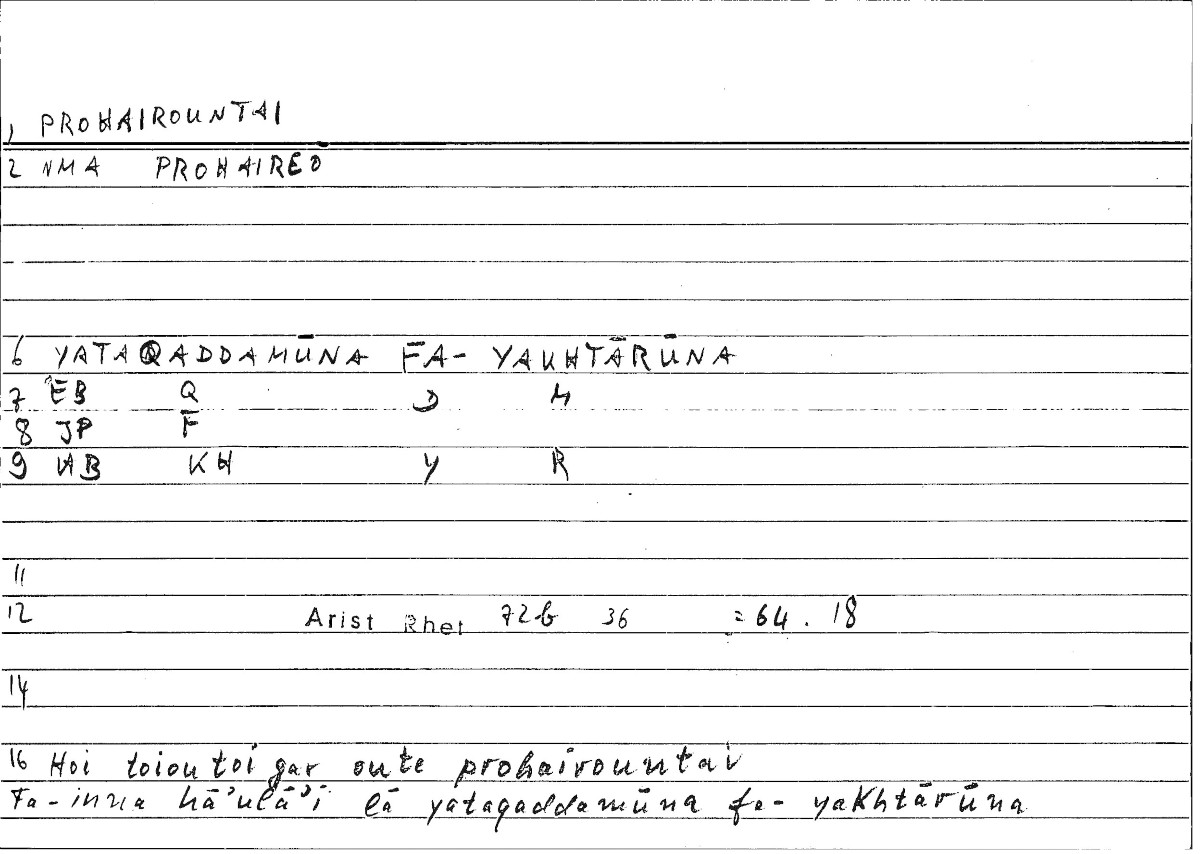 1 PROHAIROUNTAI
2 NMA PROHAIREŌ
6 YATAQADDAMŪNA FA- YAKHTĀRŪNA
7 EB Q D M
8 JP F
9 HB KH Y R
11
12 Arist Rhet 72b 36 = 64. 18
14
16 Hoi toioutoi gar oute prohairountai
Fa-inna hā'ulā'i lā yataqaddamūna fa- yakhtārūna